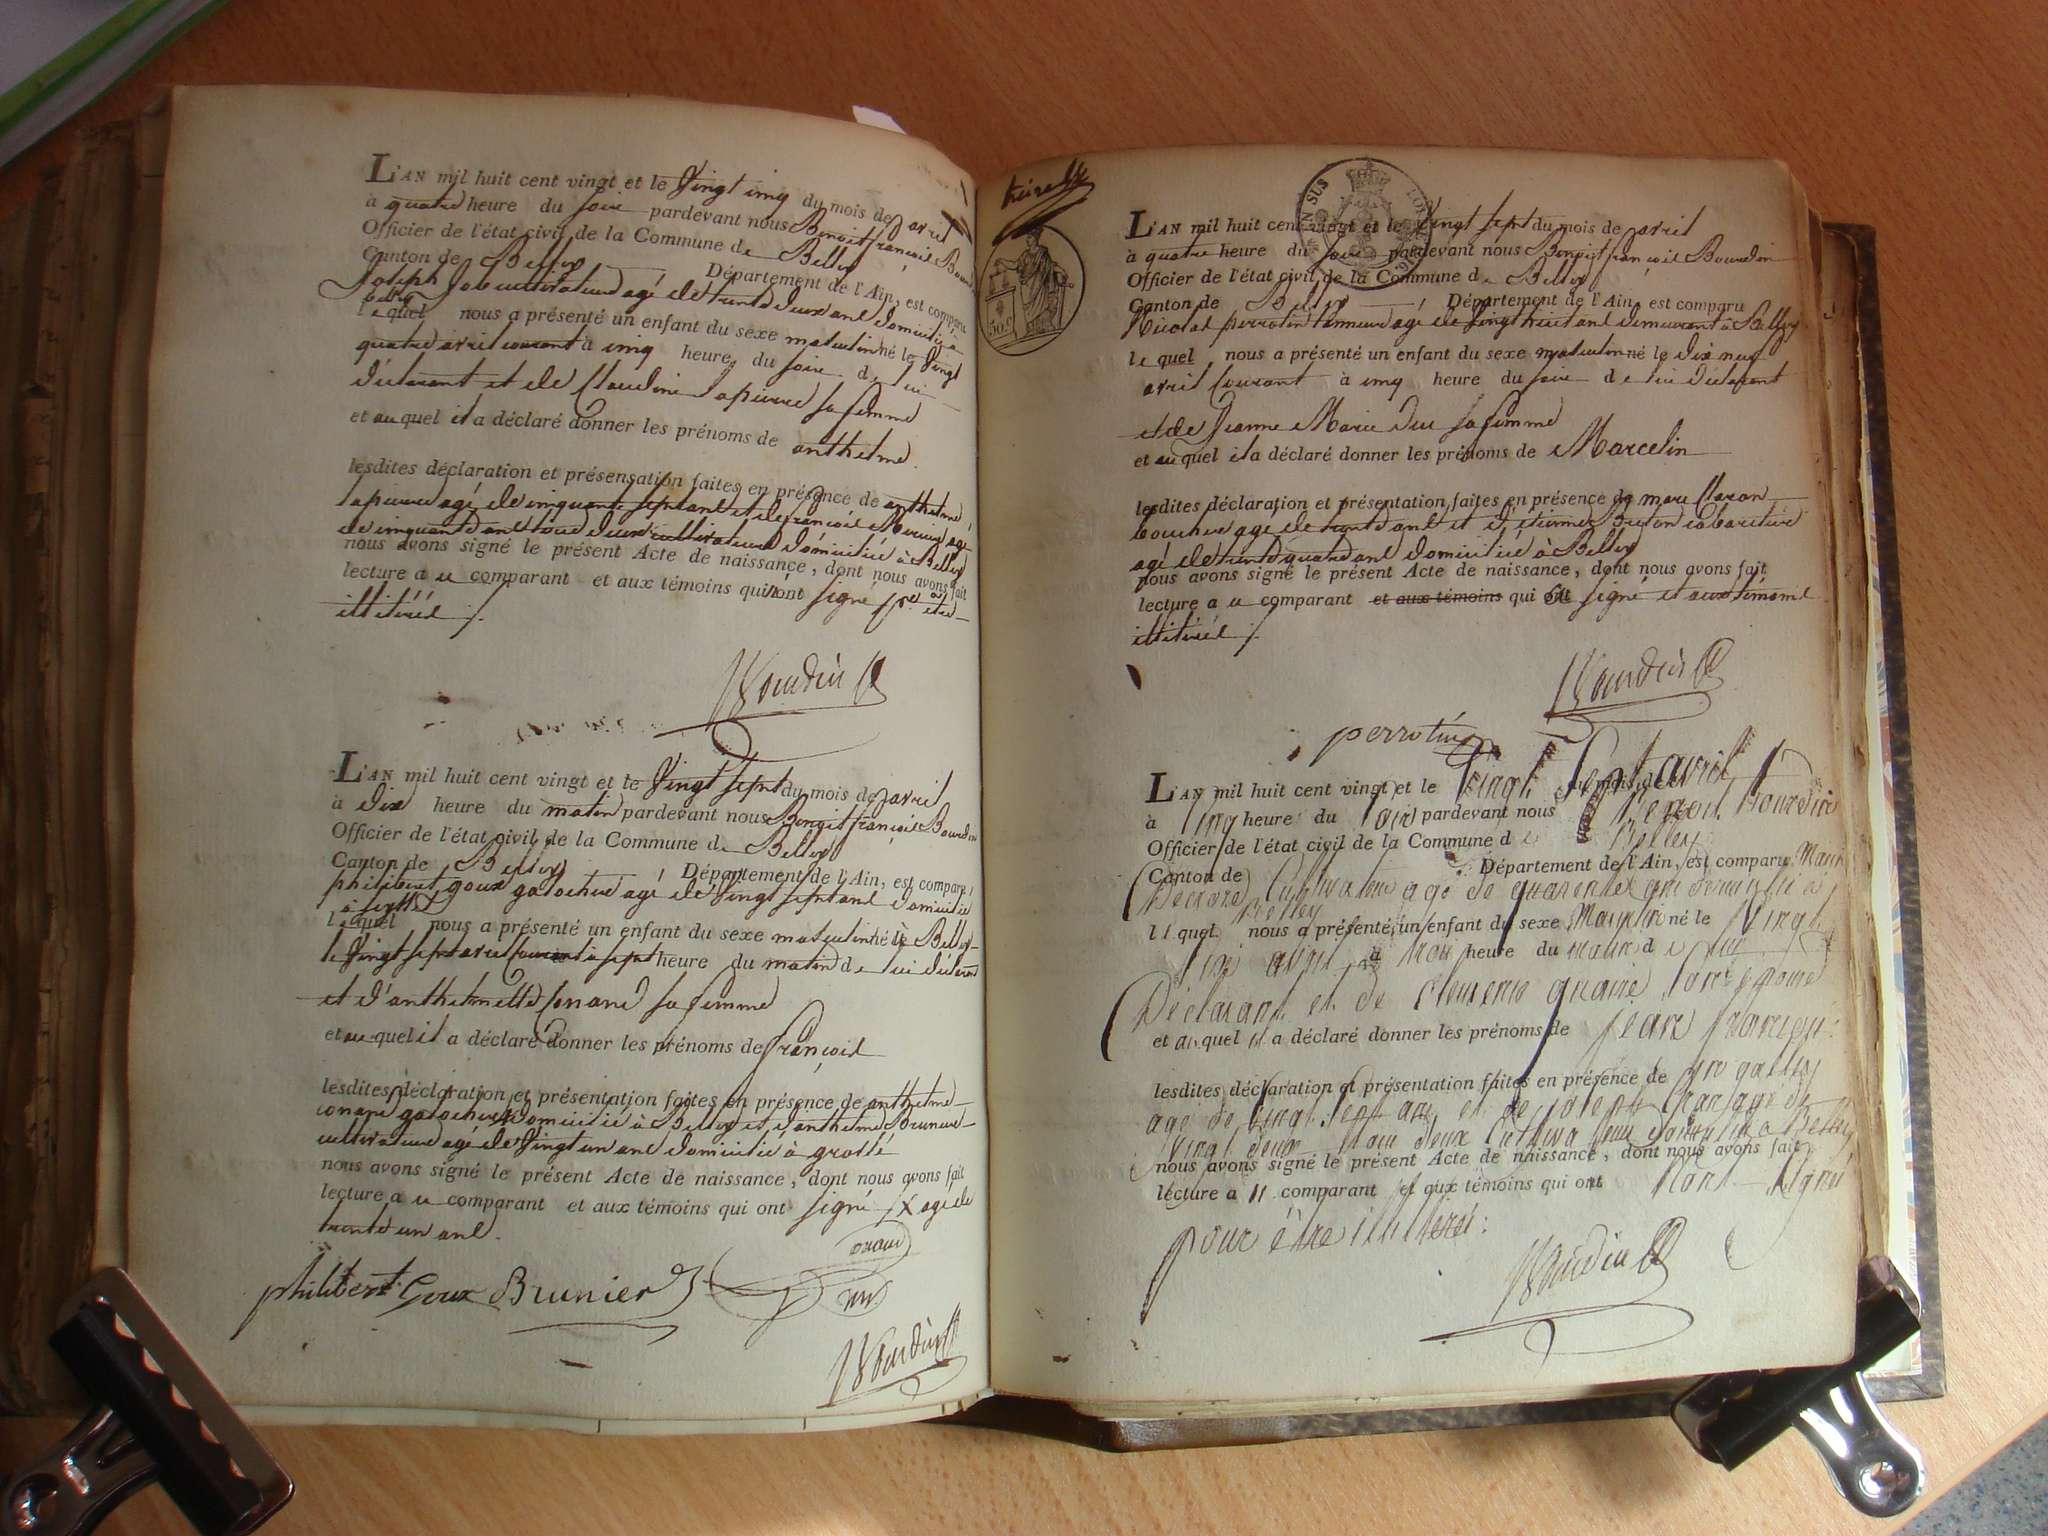 L'AN mil huit cent vingt et le Vingt cinq du mois de avril
à quatre heure du soir pardevant nous Benoit françois Bourdin
Officier de l'état civil de la Commune de Belley
Canton de Belley Département de l'Ain, est comparu
Joseph Job cultivateur agé de trente deux ans domicilié à
Belley
le quel nous a présenté un enfant du sexe masculin né le Vingt
quatre avril courant à cinq heure du soir de lui
déclarant et de Claudine Lapierre sa femme
et au quel il a déclaré donner les prénoms de anthelme
lesdites déclaration et présensation faites en présence de anthelme
lapierre agé de cinquante sept ans et de françois Mercier agé
de cinquante ans tous deux cultivateurs domiciliés à Belley
nous avons signé le présent Acte de naissance, dont nous avons fait
lecture a ce comparant et aux témoins qui n'ont signé pr etre
illitérés ./.
Bourdin
L'AN mil huit cent vingt et le Vingt sept du mois de avril
à dix heure du matin pardevant nous Benoit françois Bourdin
Officier de l'état civil de la Commune de Belley
Canton de Belley Département de l'Ain, est comparu
philibert goux galocher agé de Vingt sept ans domicilié
à
le quel nous a présenté un enfant du sexe masculin né à Belley
le Vingt sept avril courant à sept heure du matin de lui déclarant
et d'anthelmette Conand sa femme
et au quel il a déclaré donner les prénoms de françois
lesdites déclaration et présentation faites en présence de anthelme
conand galocher X domicilié à Belley et d'anthelme Bruneur
cultivateur agé de Vingt un ans domicilié à
nous avons signé le présent Acte de naissance, dont nous avons fait
lecture a ce comparant et aux témoins qui ont signé X agé de
trente un ans.
philibert Goux Brunier
Bourdin
50 c.
L'AN mil huit cent vingt et le Vingt sept du mois de avril
à quatre heure du soir pardevant nous Benoit françois Bourdin
Officier de l'état civil de la Commune de Belley
Canton de Belley Département de l'Ain, est comparu
Nicolas perrotin tanneur agé de Vingt huit ans demeurant à Belley
le quel nous a présenté un enfant du sexe masculin né le dix neuf
avril Courant à cinq heure du soir de lui déclarant
et de Jeanne Marie Duc sa femme
et au quel il a déclaré donner les prénoms de Marcelin
lesdites déclaration et présentation faites en présence de marc Claron
boucher agé de trente ans et d'étienne Breton cabaretier
agé de trente quatre ans domiciliés à Belley
nous avons signé le présent Acte de naissance, dont nous avons fait
lecture a ce comparant et aux témoins qui ont signé et aux témoins
illitérés ./.
Bourdin
perrotin
L'AN mil huit cent vingt et le Vingt Sept avril
à cinq heure du soir pardevant nous Benoit Bourdin
Officier de l'état civil de la Commune de Belley
Canton de Département de l'Ain, est comparu
Cultivateur agé de quarente ans domicilié à
Belley
le quel nous a présenté un enfant du sexe Masculin né le Vingt
Six avril à heure du matin de lui
Déclarant et de Clemence son épouse
et au quel il a déclaré donner les prénoms de jean françois
lesdites déclaration et présentation faites en présence de
agé de Vingt Sept ans et de joseph agé de
Vingt deux tous deux Cultivateur domicilié à Belley
nous avons signé le présent Acte de naissance, dont nous avons fait
lecture a comparant et aux témoins qui ont Nont Signé
pour être illiteré :
Bourdin